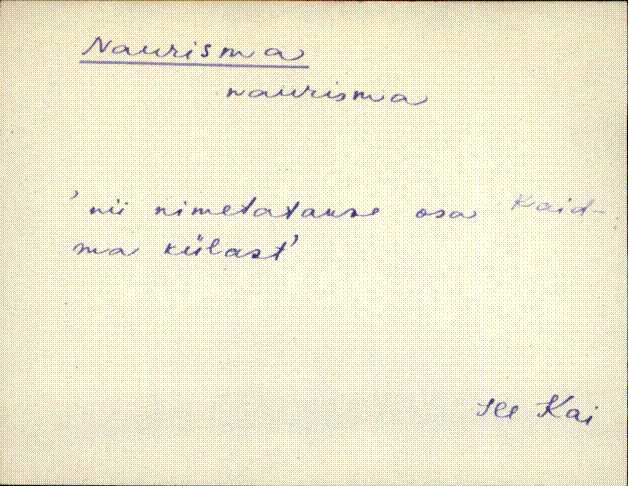 Naurisma
naurisma
'nii nimetatakse osa Kaid-
ma külast'
Kai